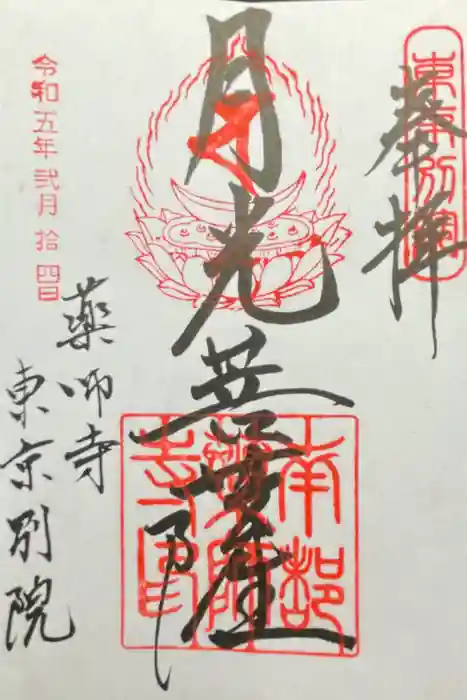 東京別院
奉拝
月光菩薩
南都
薬師
寺印
薬師寺
東京別院
令和五年弐月拾四日